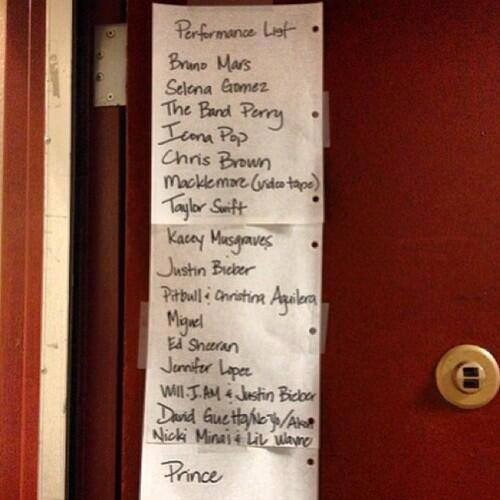 Performance List
Bruno Mars
Selena Gomez
The Band Perry
Icona Pop
Chris Brown
Macklemore (video tape)
Taylor Swift
Kacey Musgraves
Justin Bieber
Pitbull & Christina Aguilera
Miguel
Ed Sheeran
Jennifer Lopez
Will.I.AM & Justin Bieber
David Guetta/NeYo/Akon
Nicki Minaj & Lil Wayne
Prince